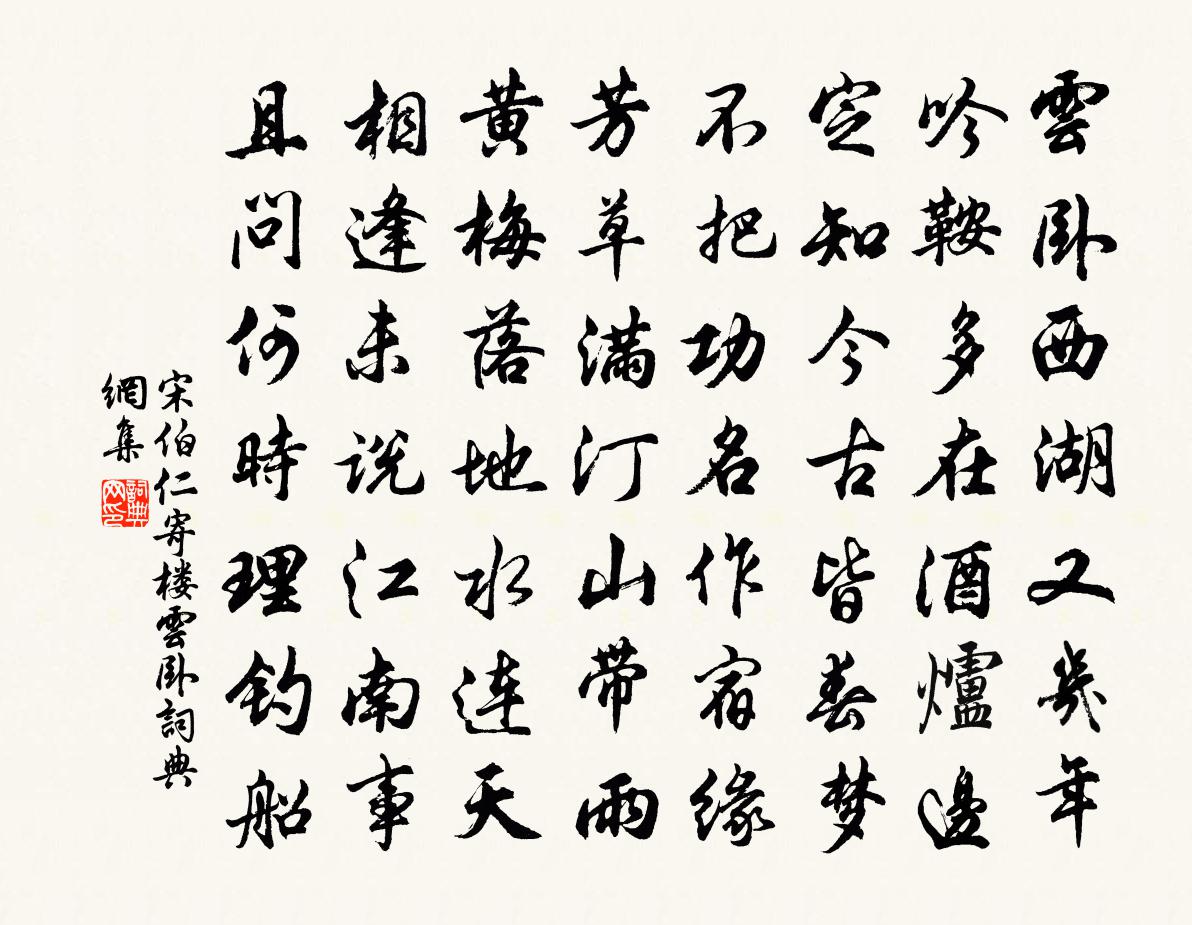 雲卧西湖又幾年
吟鞍多在酒爐邊
定知今古皆春梦
不把功名作宿缘
芳草滿汀山带雨
黄梅落地水连天
相逢未说江南事
且問何時理钓船
宋伯仁寄楼雲卧詞典
網集
詞典
网印